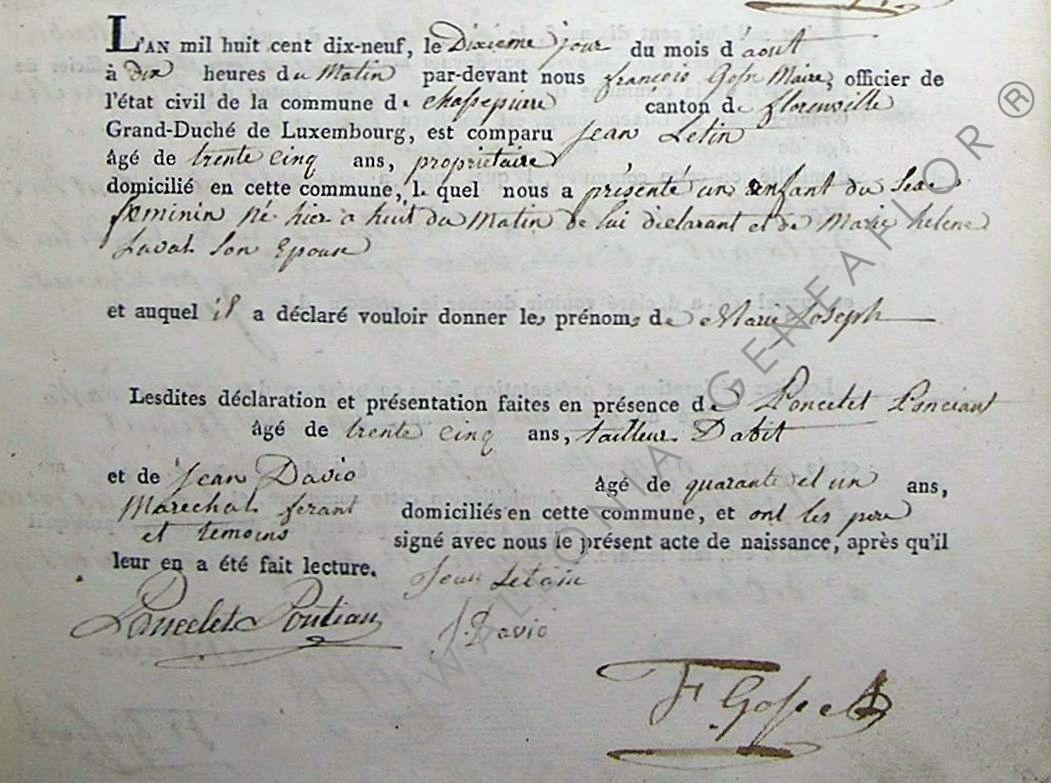 L'AN mil huit cent dix-neuf, le Dixieme jour du mois d'aout
à dix heures du Matin par-devant nous françois Gofse Maire, officier de
l'état civil de la commune de chassepierre canton de florenville
Grand-Duché de Luxembourg, est comparu Jean Letin
âgé de trente cinq ans, proprietaire
domicilié en cette commune, lequel nous a présenté un enfant du Sexe
feminin né hier a huit du Matin de lui déclarant et de Marie helene
Laval Son Epouse
et auquel il a déclaré vouloir donner les prénoms de Marie Joseph
Lesdites déclaration et présentation faites en présence de Poncelet Ponciant
âgé de trente cinq ans, tailleur Dabit
et de Jean Davio âgé de quarante et un ans,
Marechal ferant domiciliés en cette commune, et ont les pere
et temoins signé avec nous le présent acte de naissance, après qu'il
leur en a été fait lecture. Jean Letain
Poncelet Pontian J. Davio
F Gofse
WALLONIA GENEAFLOR ®